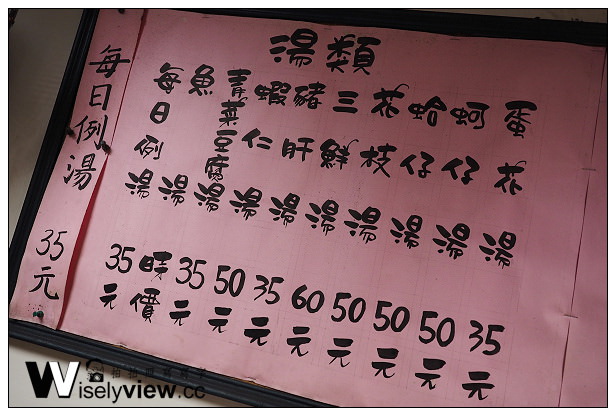 湯類
蛋花湯 35元
蚵仔湯 50元
蛤仔湯 50元
花枝湯 50元
三鮮湯 60元
豬肝湯 35元
蝦仁湯 50元
青菜豆腐湯 35元
魚湯 時價
每日例湯 35元
每日例湯 35元
Wiselyview.cc